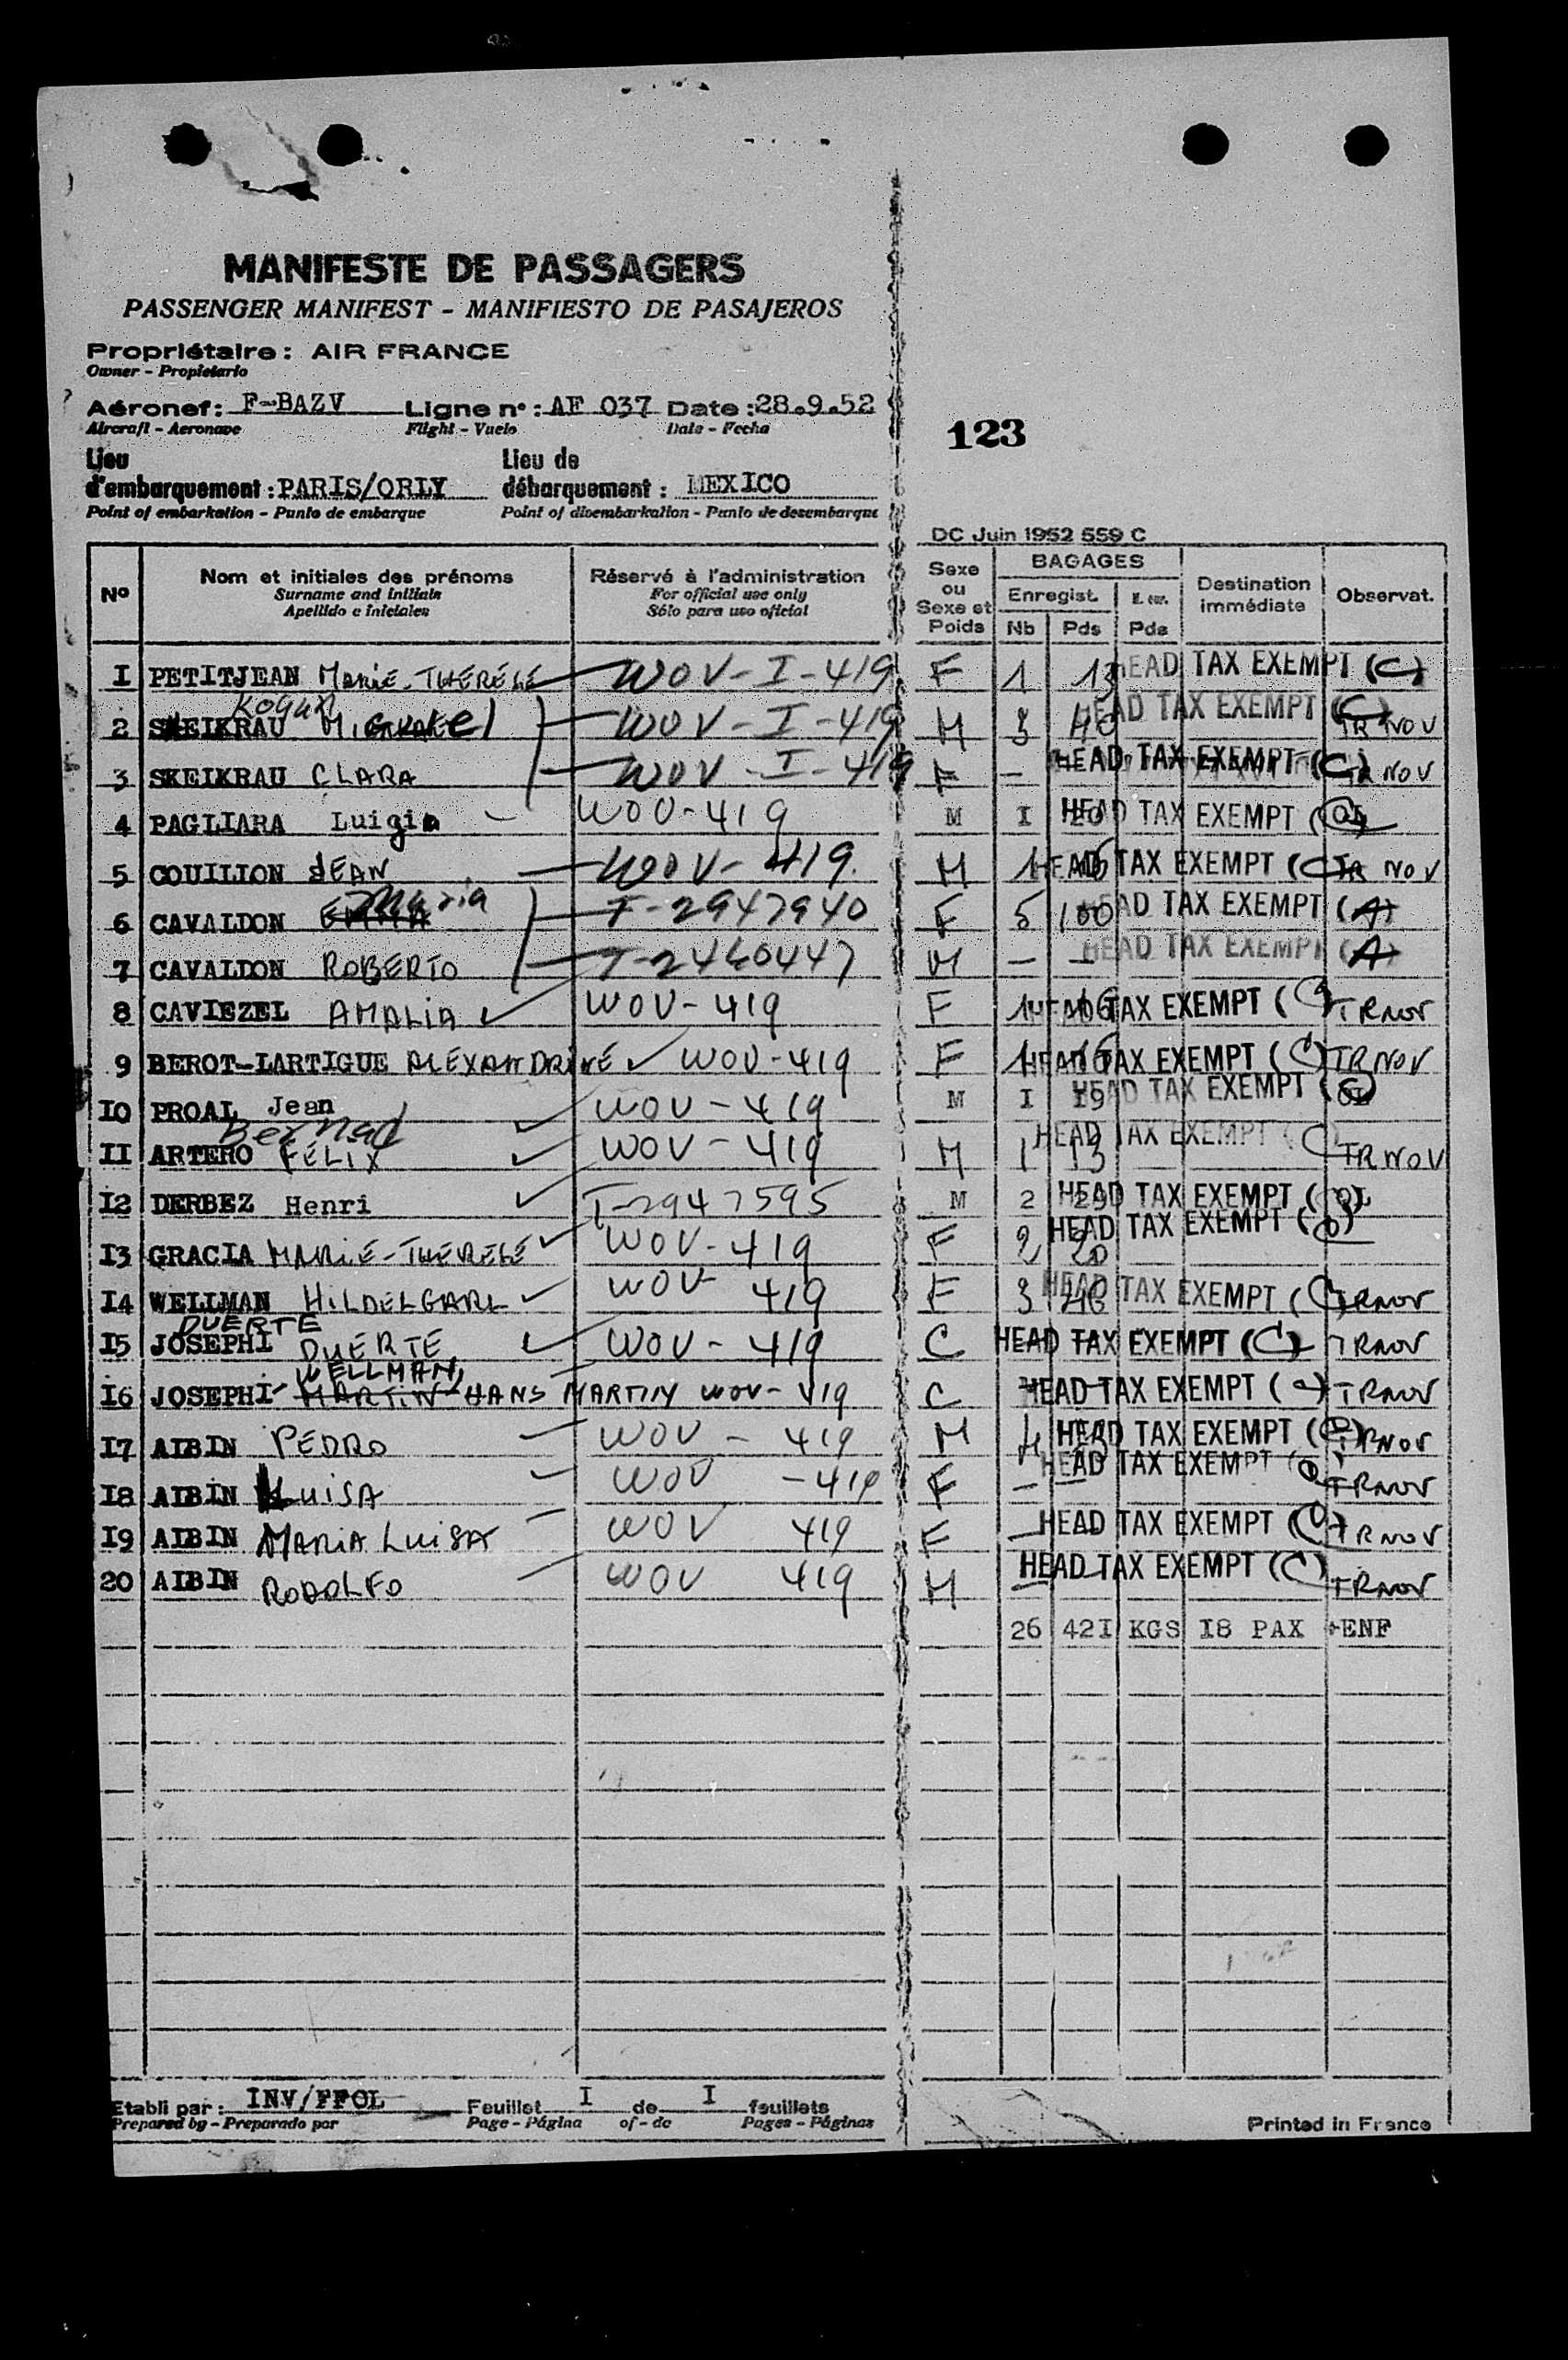 MANIFESTE DE PASSAGERS
PASSENGER MANIFEST - MANIFIESTO DE PASAJEROS
Propriétaire : AIR FRANCE
Owner - Propietario
Aéronef : F-BAZV Ligne n° : AF 037 Date : 28.9.52
Aircraft - Aeronave Flight - Vuelo Date - Fecha
123
Lieu d'embarquement : PARIS/ORLY Lieu de débarquement : MEXICO
Point of embarkation - Punto de embarque Point of disembarkation - Punto de desembarque
DC Juin 1952 559 C
N° Nom et initiales des prénoms Réservé à l'administration Sexe ou Sexe et Poids BAGAGES Destination immédiate Observat.
Surname and initials For official use only Enregist.
Apellido e iniciales Sólo para uso oficial Nb Pds Pds
I PETITJEAN MARIE-THERESE WOV-I-419 F 1 13 HEAD TAX EXEMPT (C)
Kogan
2 SKEIKRAU WOV-I-419 M 3 40 HEAD TAX EXEMPT (C) TR NOV
3 SKEIKRAU CLARA WOV-I-419 F - HEAD TAX EXEMPT (C) TR NOV
4 PAGLIARA Luigia WOV-419 M I HEAD TAX EXEMPT
5 COUILION JEAN WOV-419. M 1 HEAD TAX EXEMPT (C) TR NOV
Maria
6 CAVALDON EMMA T-2947940 F 5 100 HEAD TAX EXEMPT (A)
7 CAVALDON ROBERTO T-2460447 M - - HEAD TAX EXEMPT (A)
8 CAVIEZEL AMALIA WOV-419 F 1 16 HEAD TAX EXEMPT (C) TRNOV
9 BEROT-LARTIGUE ALEXANDRINE WOV-419 F 1 HEAD TAX EXEMPT (C) TRNOV
IO PROAL Jean WOV-419 M I I9 HEAD TAX EXEMPT
Bernad
II ARTERO FELIX WOV-419 M 1 13 HEAD TAX EXEMPT (C) TRNOV
I2 DERBEZ Henri T-2947595 M 2 HEAD TAX EXEMPT
I3 GRACIA MARIE-THERESE WOV-419 F 2 20 HEAD TAX EXEMPT
I4 WELLMAN HILDELGARL WOV 419 F 3 HEAD TAX EXEMPT (C) TRNOV
DUERTE
I5 JOSEPHI DUERTE WOV-419 C HEAD TAX EXEMPT (C) TRNOV
WELLMAN,
I6 JOSEPHI MARTIN HANS MARTIN WOV-419 C HEAD TAX EXEMPT (C) TRNOV
I7 AIBIN PEDRO WOV - 419 M 4 HEAD TAX EXEMPT (C) TRNOV
I8 AIBIN LUISA WOV - 419 F - - HEAD TAX EXEMPT TRNOV
I9 AIBIN MARIA LUISA WOV 419 F - HEAD TAX EXEMPT (C) TRNOV
20 AIBIN RODOLFO WOV 419 M - HEAD TAX EXEMPT (C) TRNOV
26 42I KGS I8 PAX +ENF
Etabli par : INV/FFOL Feuillet I de I feuillets
Prepared by - Preparado por Page - Página of - de Pages - Páginas
Printed in France